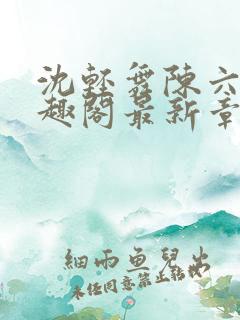 沈轻舞陈六
趣阁最新章
細雨魚兒出
未经同意禁止转载